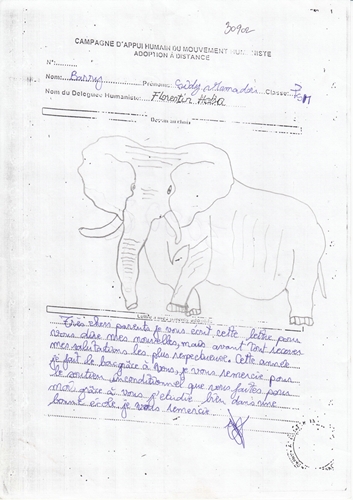 30902
CAMPAGNE D'APPUI HUMAIN DU MOUVEMENT HUMANISTE
ADOPTION A DISTANCE
N°:
Nom: Barry Prénoms: Classe:
Nom du Délégué Humaniste: Florentin
Très chers parents je vous écrit cette lettre pour
vous dire mes nouvelles, mais avant tout recevez
mes salutations les plus respectueuse. Cette année
je fait le bac grâce à vous, je vous remercie pour
le soutien inconditionnel que vous faites pour
moi grâce à vous j'etudie bien dans une
bonne école je vous remercie